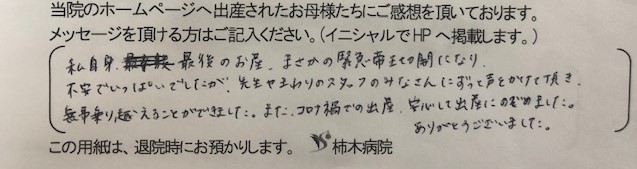 当院のホームページへ出産されたお母様たちにご感想を頂いております。
メッセージを頂ける方はご記入ください。(イニシャルでHPへ掲載します。)
私自身、最後のお産、まさかの緊急帝王切開になり、
不安でいっぱいでしたが、先生やまわりのスタッフのみなさんにずっと声をかけて頂き、
無事乗り越えることができました。また、コロナ禍での出産、安心して出産にのぞめました。
ありがとうございました。
この用紙は、退院時にお預かりします。 柿木病院